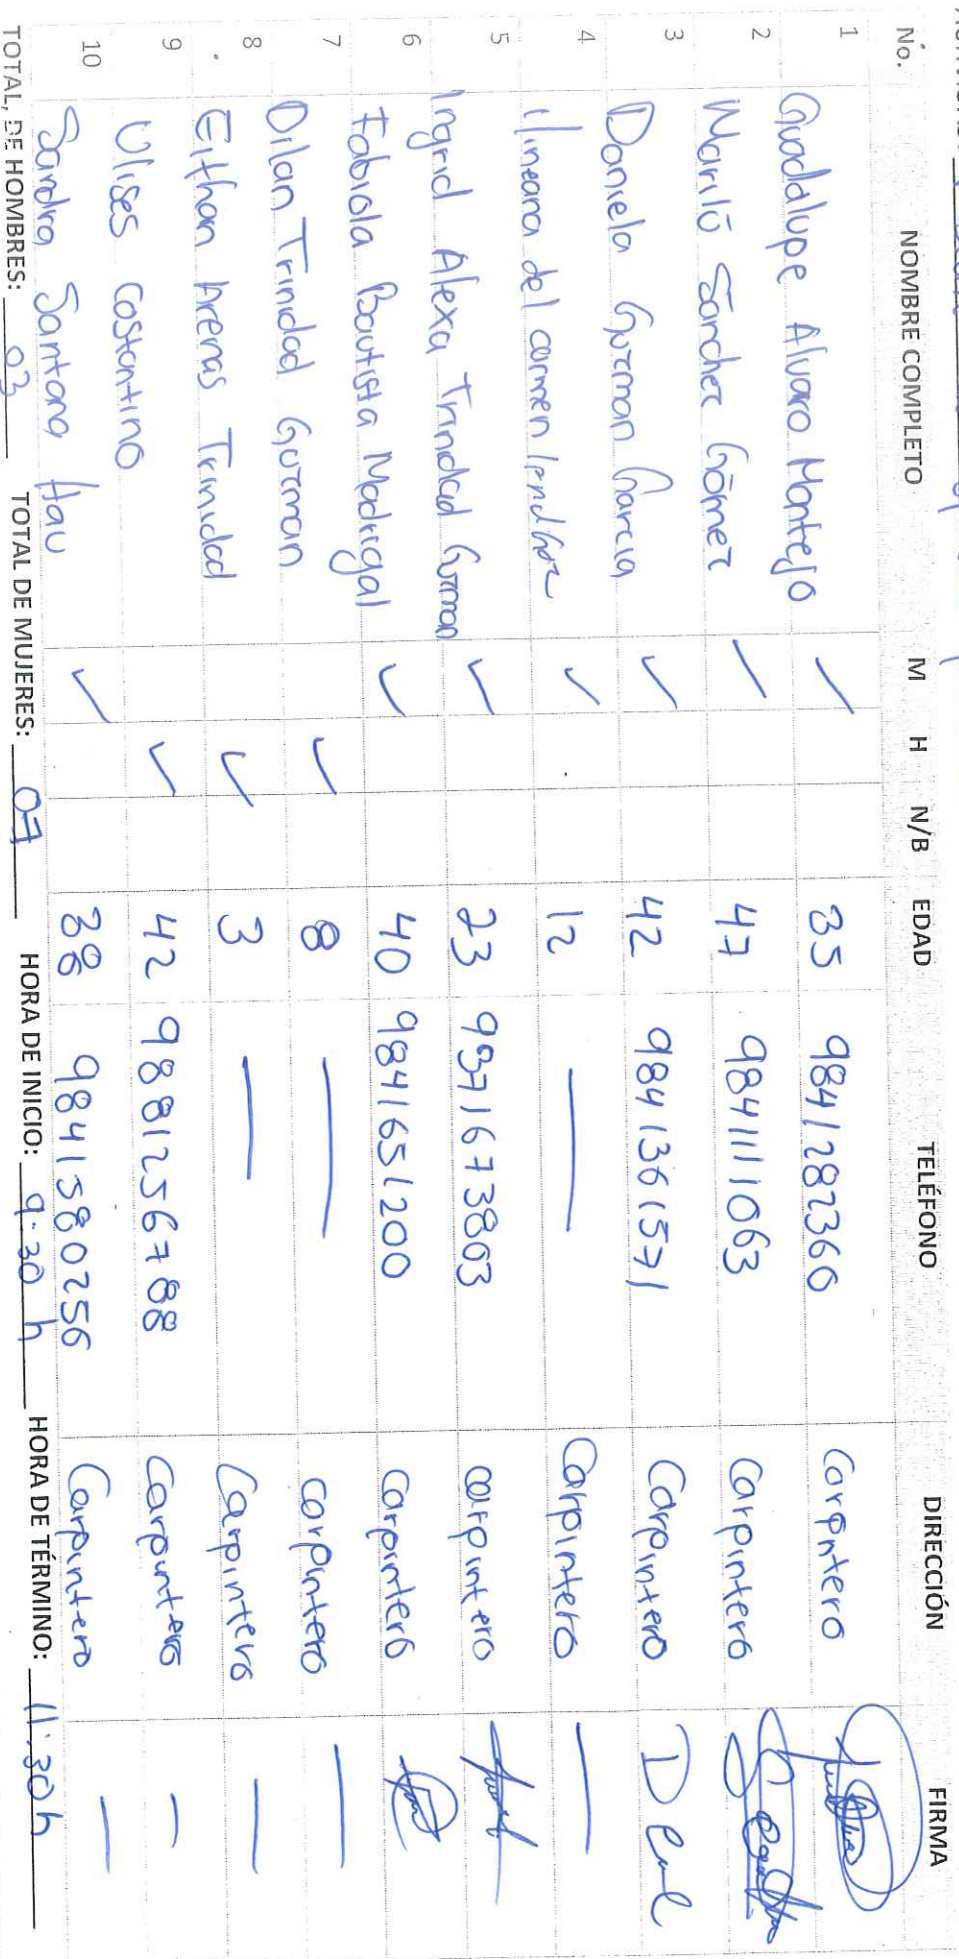 No. NOMBRE COMPLETO M H N/B EDAD TELÉFONO DIRECCIÓN FIRMA
1 Guadalupe Alvaro Montejo / 35 9841282360 Carpintero
2 Marilú Sánchez Gómez / 47 9841111063 Carpintero
3 Daniela Guzman Garcia ✓ 42 9841361571 Carpintero
4 del carmen ✓ 12 — Carpintero —
5 Ingrid Alexa Trinidad Guzman ✓ 23 9371673863 carpintero
6 Fabiola Bautista Madrigal ✓ 40 9841651200 Carpintero
7 Dilan Trinidad Guzman ✓ 8 — carpintero —
8 Eithan Arenas Trinidad ✓ 3 — Carpintero —
9 Ulises Costantino ✓ 42 9881256788 Carpintero —
10 Sandra Santana Hau ✓ 38 9841580256 Carpintero —
TOTAL, DE HOMBRES: 03 TOTAL DE MUJERES: 07 HORA DE INICIO: 9:30 h HORA DE TÉRMINO: 11:30 h